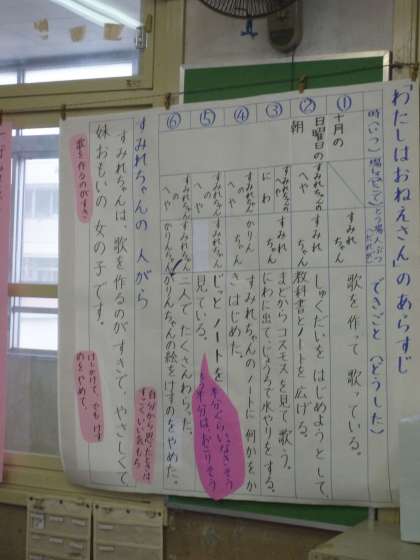 「わたしはおねえさん」のあらすじ
時(いつ) 場しょ(どこで) とう場人ぶつ(だれが) できごと(どうした)
① 十月の すみれちゃん 歌を作って歌っている。
② 日曜日の朝 すみれちゃんのへや すみれちゃん しゅくだいをはじめようとして、教科書とノートを広げる。
③ にわ すみれちゃん まどからコスモスを見て歌う。にわに出て、じょうろで水やりをする。
④ すみれちゃんのへや かりんちゃん すみれちゃんのノートに何かをかきはじめた。
⑤ すみれちゃんのへや じっとノートを見ている。
半分ぐらいなきそう
半分はおこりそう
⑥ すみれちゃんのへや すみれちゃん かりんちゃん 二人でたくさんわらった。かりんちゃんの絵をけすのをやめた。
自分から思いたときはすごくいい気もち
すみれちゃんの人がら
すみれちゃんは、歌を作るのがすきで、やさしくて妹おもいの女の子です。
歌を作るのがすき。
けしかけて、でもけすのをやめて、